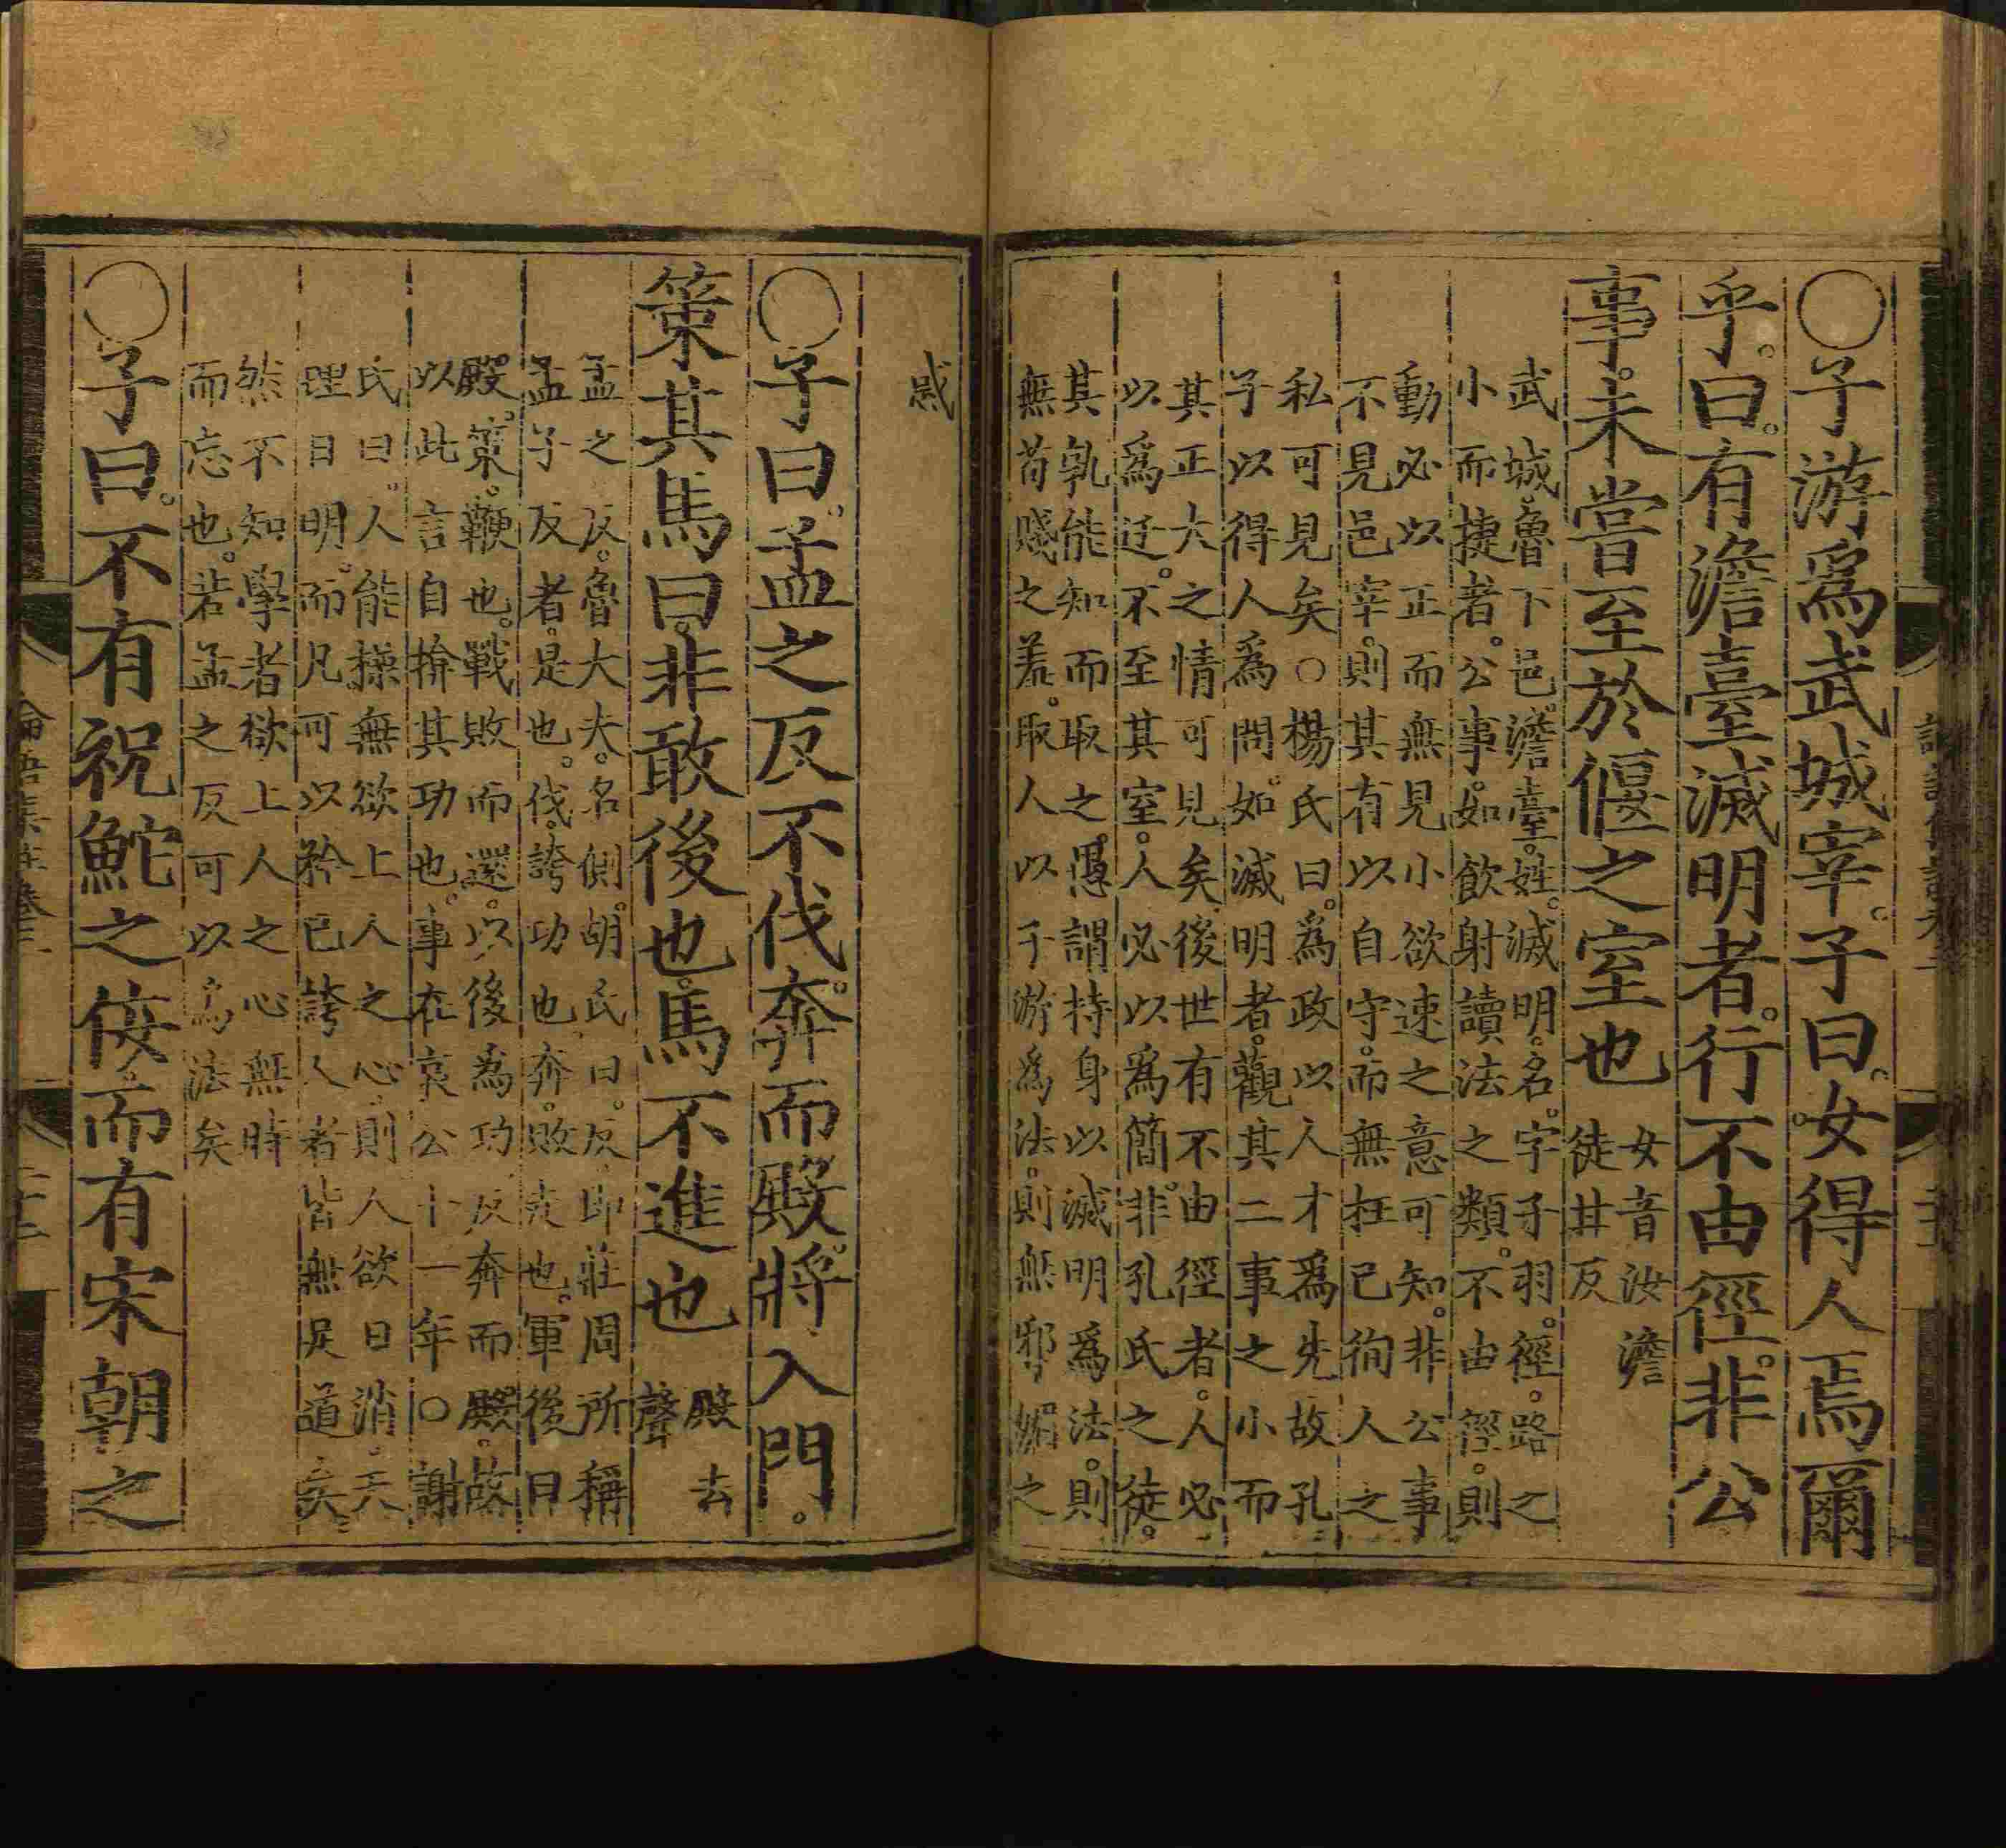 ○子游爲武城宰。子曰。女得人焉爾
乎。曰。有澹臺滅明者。行不由徑。非公
事。未嘗至於偃之室也
女音汝澹
徒甘反
武城。魯下邑。澹臺。姓。滅明。名。字子羽。徑。路之
小而捷者。公事。如飲射讀法之類。不由徑。則
動必以正而無見小欲速之意可知。非公事
不見邑宰。則其有以自守。而無枉己徇人之
私可見矣○楊氏曰。爲政以人才爲先故孔
子以得人爲問。如滅明者。觀其二事之小而
其正大之情可見矣後世有不由徑者。人必
以爲迂。不至其室。人必以爲簡。非孔氏之徒。
其孰能知而取之。愚謂持身以滅明爲法。則
無苟賤之羞。取人以子游爲法。則無邪媚之
惑
○子曰。孟之反不伐。奔而殿。將入門。
策其馬曰。非敢後也。馬不進也
殿去
聲
孟之反。魯大夫。名側。胡氏曰。反即莊周所稱
孟子反者。是也。伐。誇功也。奔。敗走也。軍後曰
殿。策。鞭也。戰敗而還。以後爲功反奔而殿。故
以此言自揜其功也。事在哀公十一年○謝
氏曰。人能操無欲上人之心。則人欲日消。天
理日明。而凡可以矜己誇人者皆無足道矣
然不知學者欲上人之心無時
而忘也。若孟之反可以爲法矣
○子曰。不有祝鮀之佞。而有宋朝之
論語集註卷三